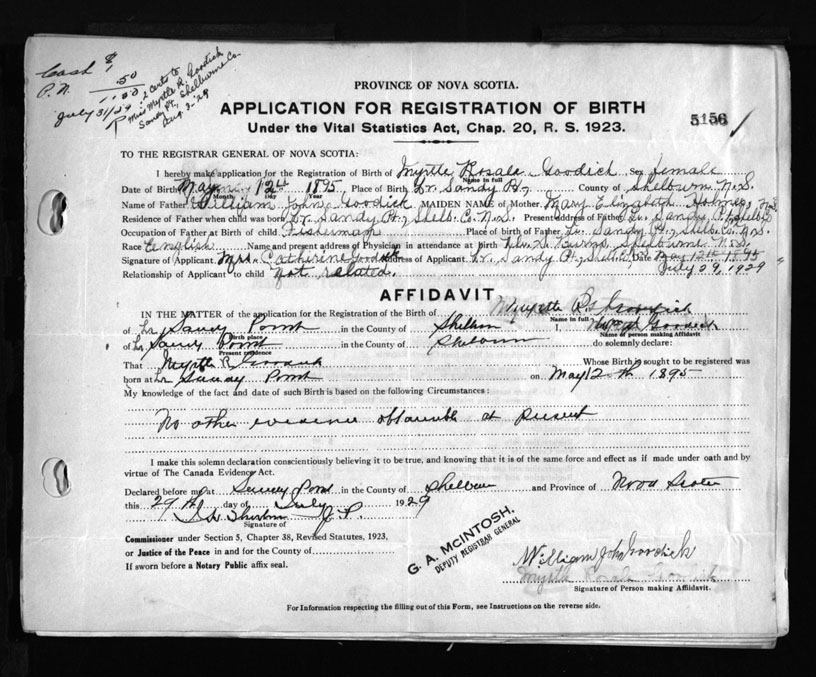 Cash $1
P. N. .50
1.00 2 certs to
July 31/29 Miss Myrtle R. Goodick
Sandy Pt., Shelburne Co.
Aug. 3-'29
PROVINCE OF NOVA SCOTIA.
APPLICATION FOR REGISTRATION OF BIRTH
5156
Under the Vital Statistics Act, Chap. 20, R. S. 1923.
TO THE REGISTRAR GENERAL OF NOVA SCOTIA:
I hereby make application for the Registration of Birth of Myrtle Rosala Goodick Sex female
Name in full
Date of Birth May 12th 1895 Place of Birth Lr. Sandy Pt., County of Shelburn N.S.
Month Day Year
Name of Father William John Goodick MAIDEN NAME of Mother Mary Elizabeth Holmes
Residence of Father when child was born Lr. Sandy Pt., Shelb. Co. N.S. Present address of Father Lr. Sandy Pt.
Occupation of Father at Birth of child Fisherman Place of birth of Father Lr. Sandy Pt., Shelb. Co. N.S.
Race English Name and present address of Physician in attendance at birth Burns, Shelburne N.S.
Signature of Applicant Mrs. Catherine Goodick Address of Applicant Lr. Sandy Pt., Shelb. Date May 12th 1895
Relationship of Applicant to child not related. July 29, 1929
AFFIDAVIT
IN THE MATTER of the application for the Registration of the Birth of Goodick
Name in full
of Lr Sandy Point in the County of I, Goodick
Birth place Name of person making Affidavit
of Lr Sandy Point in the County of Shelburn do solemnly declare:
Present residence
That Myrtle R Goodick Whose Birth is sought to be registered was
born at Lr Sandy Point on May 12th 1895
My knowledge of the fact and date of such Birth is based on the following Circumstances:
No other evidence obtainable at present
I make this solemn declaration conscientiously believing it to be true, and knowing that it is of the same force and effect as if made under oath and by
virtue of The Canada Evidence Act.
Declared before me at Sandy Point in the County of Shelburn and Province of Nova Scotia
this 29th day of July 1929
J.P.
Signature of
Commissioner under Section 5, Chapter 38, Revised Statutes, 1923,
or Justice of the Peace in and for the County of
If sworn before a Notary Public affix seal.
G. A. McINTOSH,
DEPUTY REGISTRAR GENERAL
William John Goodick
Myrtle Rosala Goodick
Signature of Person making Affidavit.
For Information respecting the filling out of this Form, see Instructions on the reverse side.